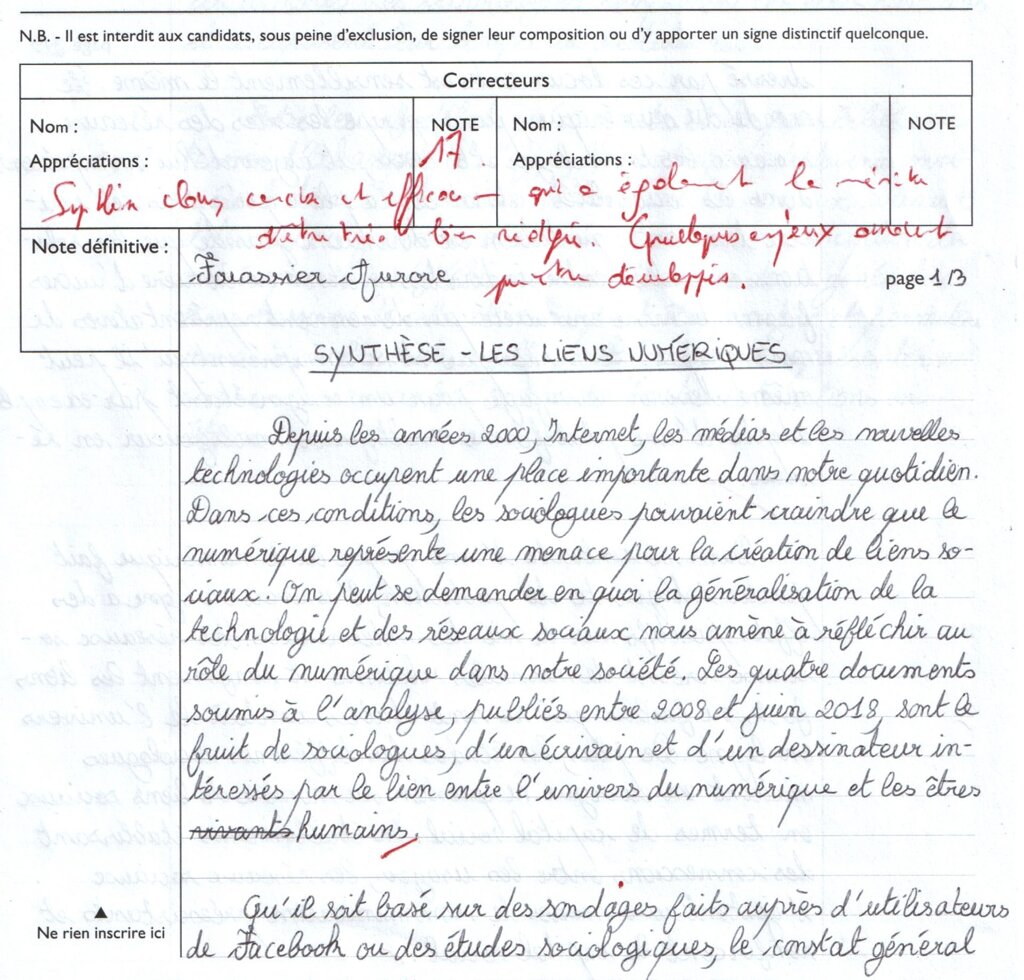 N.B. - Il est interdit aux candidats, sous peine d'exclusion, de signer leur composition ou d'y apporter un signe distinctif quelconque.
Correcteurs
Nom :
NOTE
Nom :
NOTE
Appréciations :
17
Appréciations :
claire, concise et efficace qui a également le mérite
d'être très bien rédigée. Quelques enjeux auraient
Note définitive :
Faiassier Aurore
pu être développés.
page 1/3
SYNTHÈSE - LES LIENS NUMÉRIQUES
Depuis les années 2000, Internet, les médias et les nouvelles
technologies occupent une place importante dans notre quotidien.
Dans ces conditions, les sociologues pouvaient craindre que le
numérique représente une menace pour la création de liens so-
ciaux. On peut se demander en quoi la généralisation de la
technologie et des réseaux sociaux nous amène à réfléchir au
rôle du numérique dans notre société. Les quatre documents
soumis à l'analyse, publiés entre 2008 et juin 2018, sont le
fruit de sociologues, d'un écrivain et d'un dessinateur in-
téressés par le lien entre l'univers du numérique et les êtres
vivants humains.
Qu'il soit basé sur des sondages faits auprès d'utilisateurs
de Facebook ou des études sociologiques, le constat général
▲
Ne rien inscrire ici